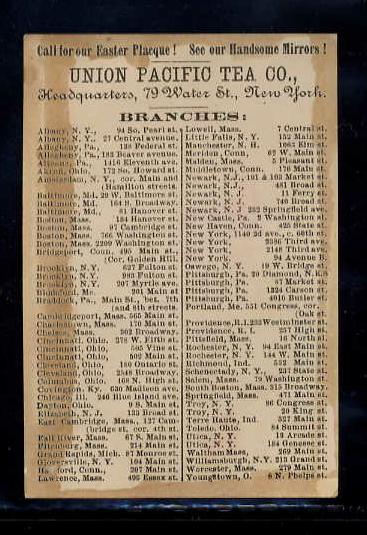 Call for our Easter Placque! See our Handsome Mirrors!
UNION PACIFIC TEA CO.,
Headquarters, 79 Water St., New York.
BRANCHES:
Albany, N. Y., 94 So. Pearl st.
Albany, N. Y., 27 Central avenue.
Allegheny, Pa., 138 Federal st.
Allegheny, Pa., 183 Beaver avenue.
Altoona, Pa., 1416 Eleventh ave.
Akron, Ohio. 172 So. Howard st.
Amsterdam, N. Y., cor. Main and
(Hamilton streets.
Baltimore, Md. 29 W. Baltimore st.
Baltimore, Md. 164 S. Broadway.
Baltimore, Md., 81 Hanover st.
Boston, Mass. 134 Hanover st.
Boston, Mass. 11 Cambridge st.
Boston, Mass. 766 Washington st.
Boston, Mass. 2209 Washington st.
Bridgeport, Conn. 495 Main st.,
(Cor. Golden Hill.
Brooklyn, N. Y. 627 Fulton st.
Brooklyn, N. Y. 993 Fulton st.
Brooklyn, N. Y. 207 Myrtle ave.
Biddeford, Me. 201 Main st.
Braddock, Pa., Main St., bet. 7th
(and 8th streets.
Cambridgeport, Mass. 565 Main st.
Charlestown, Mass. 170 Main st.
Chelsea, Mass. 302 Broadway.
Cincinnati, Ohio. 278 W. Fifth st.
Cincinnati, Ohio, 565 Vine st.
Cincinnati, Ohio, 502 Main st.
Cleveland, Ohio, 180 Ontario st.
Cleveland, Ohio, 2548 Broadway.
Columbus, Ohio, 168 N. High st.
Covington, Ky. 600 Madison ave.
Chicago, Ill. 246 Blue Island ave.
Dayton, Ohio. 9 S. Main st.
Elizabeth, N. J. 123 Broad st.
East Cambridge, Mass., 127 Cam-
(bridge st. cor. 4th st.
Fall River, Mass. 67 S. Main st.
Fitchburg, Mass. 214 Main st.
Grand Rapids, Mich. 87 Monroe st.
Gloversville, N. Y. 104 Main st.
Hartford, Conn. 207 Main st.
Lawrence, Mass. 495 Essex st.
Lowell, Mass. 7 Central st.
Little Falls, N. Y. 152 Main st.
Manchester, N. H. 1063 Elm st.
Meriden, Conn. 62 W. Main st.
Malden, Mass. 5 Pleasant st.
Middletown, Conn. 176 Main st.
Newark, N.J., 101 & 103 Market st.
Newark, N.J., 481 Broad st.
Newark, N. J. 11 Ferry st.
Newark, N. J. 740 Broad st.
Newark, N. J. 252 Springfield ave.
New Castle, Pa. 2 Washington st.
New Haven, Conn. 425 State st.
New York, 1140 2d ave., c. 60th st.
New York, 2286 Third ave.
New York, 2148 Third ave.
New York, 94 Avenue B.
Oswego, N. Y. 19 W. Bridge st.
Pittsburgh, Pa. 20 Diamond, N.E.S
Pittsburgh, Pa. 87 Market st.
Pittsburgh, Pa. 1324 Carson st
Pittsburgh, Pa. 4016 Butler st
Portland, Me. 551 Congress, cor.
(Oak st.
Providence, R.I. 233 Westminster st.
Providence, R. I. 257 High st.
Pittsfield, Mass. 16 North st.
Rochester, N. Y. 94 East Main st.
Rochester, N. Y. 144 W. Main st.
Richmond, Ind. 532 Main st.
Schenectady, N. Y., 237 State st.
Salem, Mass. 79 Washington st.
South Boston, Mass. 315 Broadway.
Springfield, Mass. 471 Main st.
Troy, N. Y. 86 Congress st.
Troy, N. Y. 20 King st.
Terre Haute, Ind. 527 Main st.
Toledo, Ohio. 84 Summit st.
Utica, N. Y. 13 Arcade st.
Utica, N. Y. 184 Genesee st.
Waltham, Mass. 269 Main st.
Williamsburgh, N.Y. 215 Grand st.
Worcester, Mass. 279 Main st.
Youngstown, O. 6 N. Phelps st.